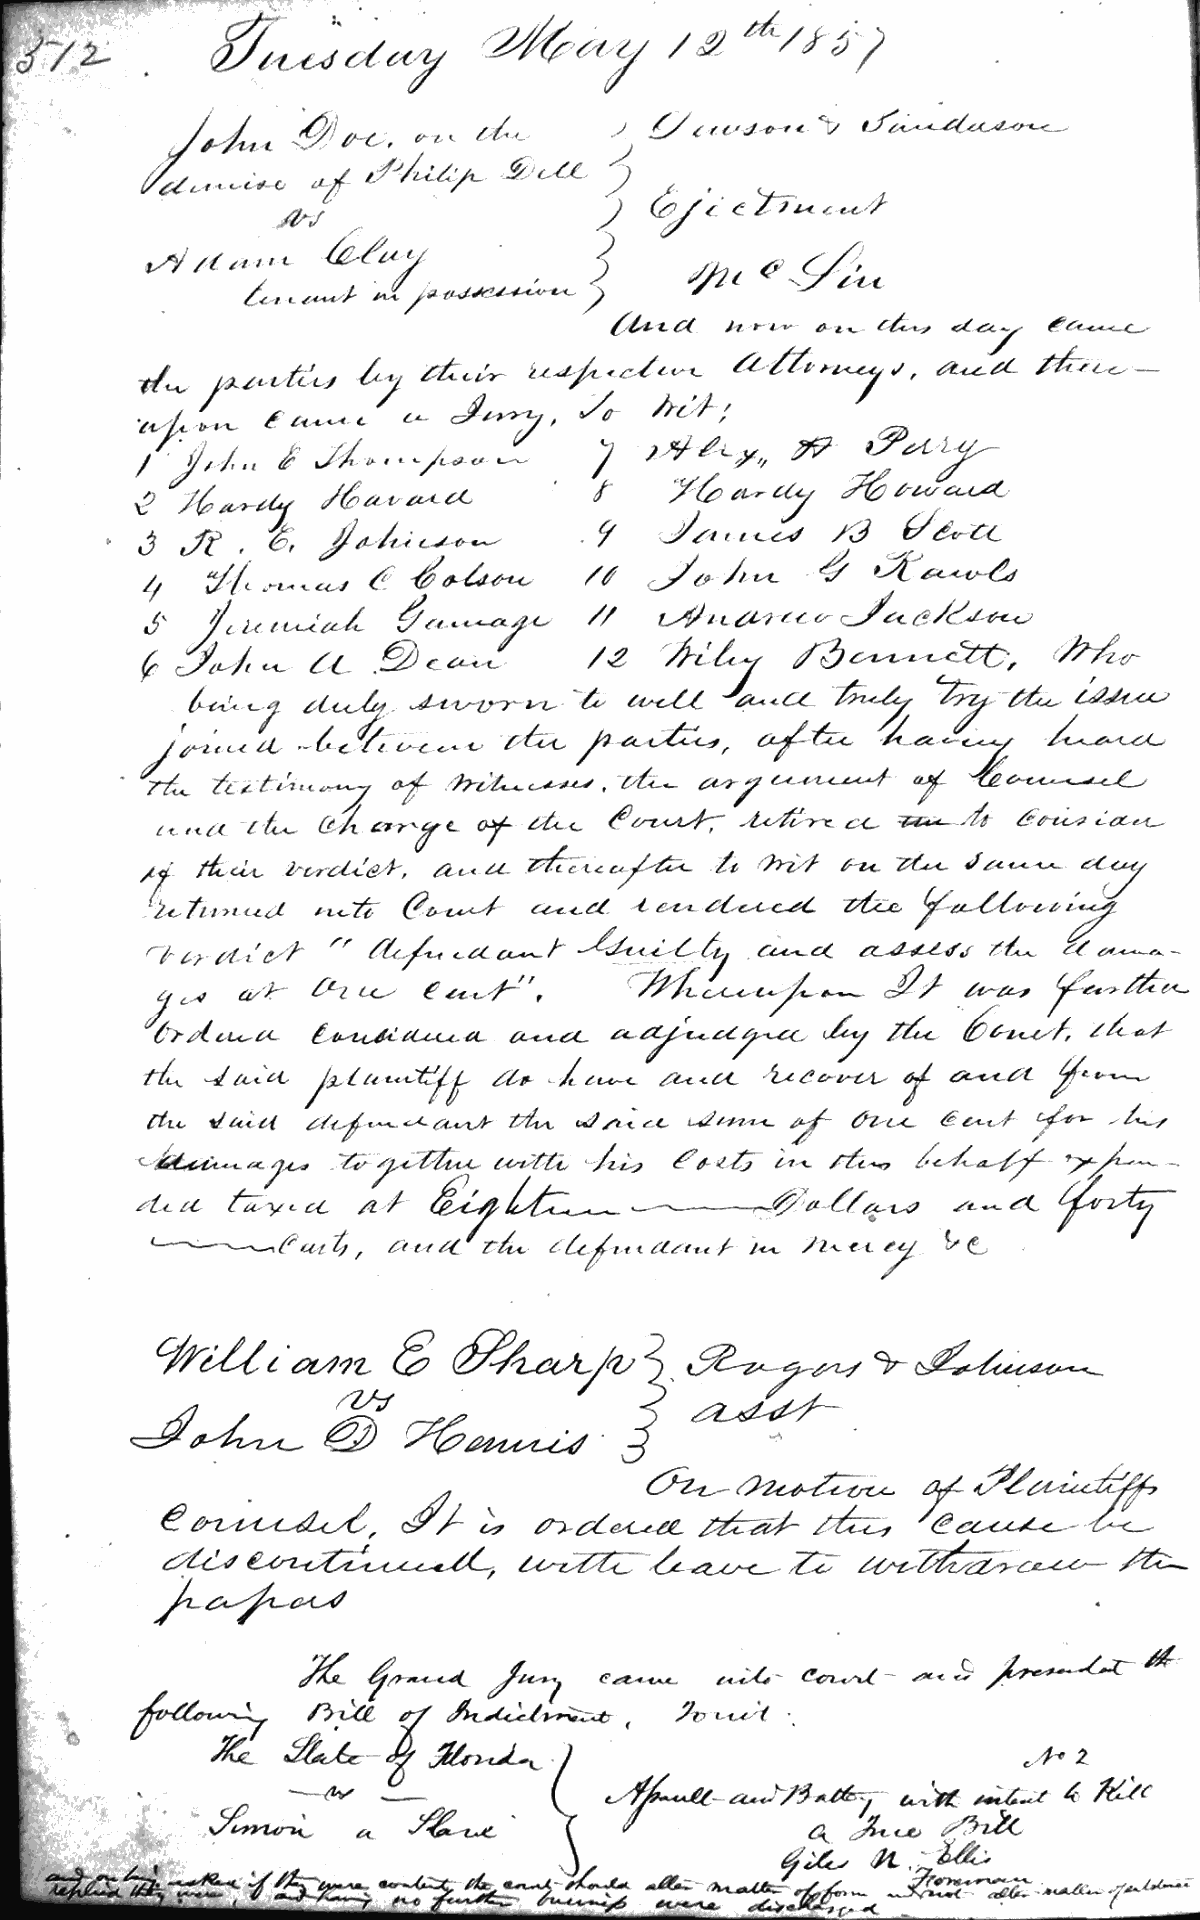 512 Tuesday May 12th 1857
John Doe, on the } Dawson & Sanderson
demise of Philip Dell }
vs } Ejectment
Adam Clay }
tenant in possession } McLin
And now on this day came
the parties by their respective Attorneys, and there-
upon came a Jury, To Wit;
1 John E Thompson 7 Alex,, A Perry
2 Hardy Havard 8 Hardy Howard
3 R. E. Johnson 9 James B Scott
4 Thomas C Colson 10 John G Rawls
5 Jeremiah Gamage 11 Andrew Jackson
6 John A Dean 12 Wiley Bennett, Who
being duly sworn to well and truly try the issue
joined between the parties, after having heard
the testimony of Witnesses, the argument of Counsel
and the Charge of the Court, retired to consider
of their verdict, and thereafter to Wit on the same day
returned into Court and rendered the following
verdict " defendant Guilty and assess the dama-
ges at One Cent". Whereupon It was further
Ordered considered and adjudged by the Court, that
the said plaintiff do have and recover of and from
the said defendant the said sum of One Cent for his
damages together with his Costs in this behalf expen-
ded taxed at Eighteen Dollars and forty
Cents, and the defendant in mercy &c
William E Sharp } Rogers & Johnson
vs } asst
John D Hennis }
On motion of Plaintiffs
Counsel, It is ordered that this cause be
discontinued, with leave to withdraw the
papers
The Grand Jury came into court and presented the
following Bill of Indictment, Towit:
The State of Florida } No 2
vs } Assault and Battery with intent to Kill
Simon a Slave } a True Bill
Giles N. Ellis
Foreman
and on being asked if they were content the court should alter matter of form and not alter matter of evidence
replied they were, and having no further business were discharged